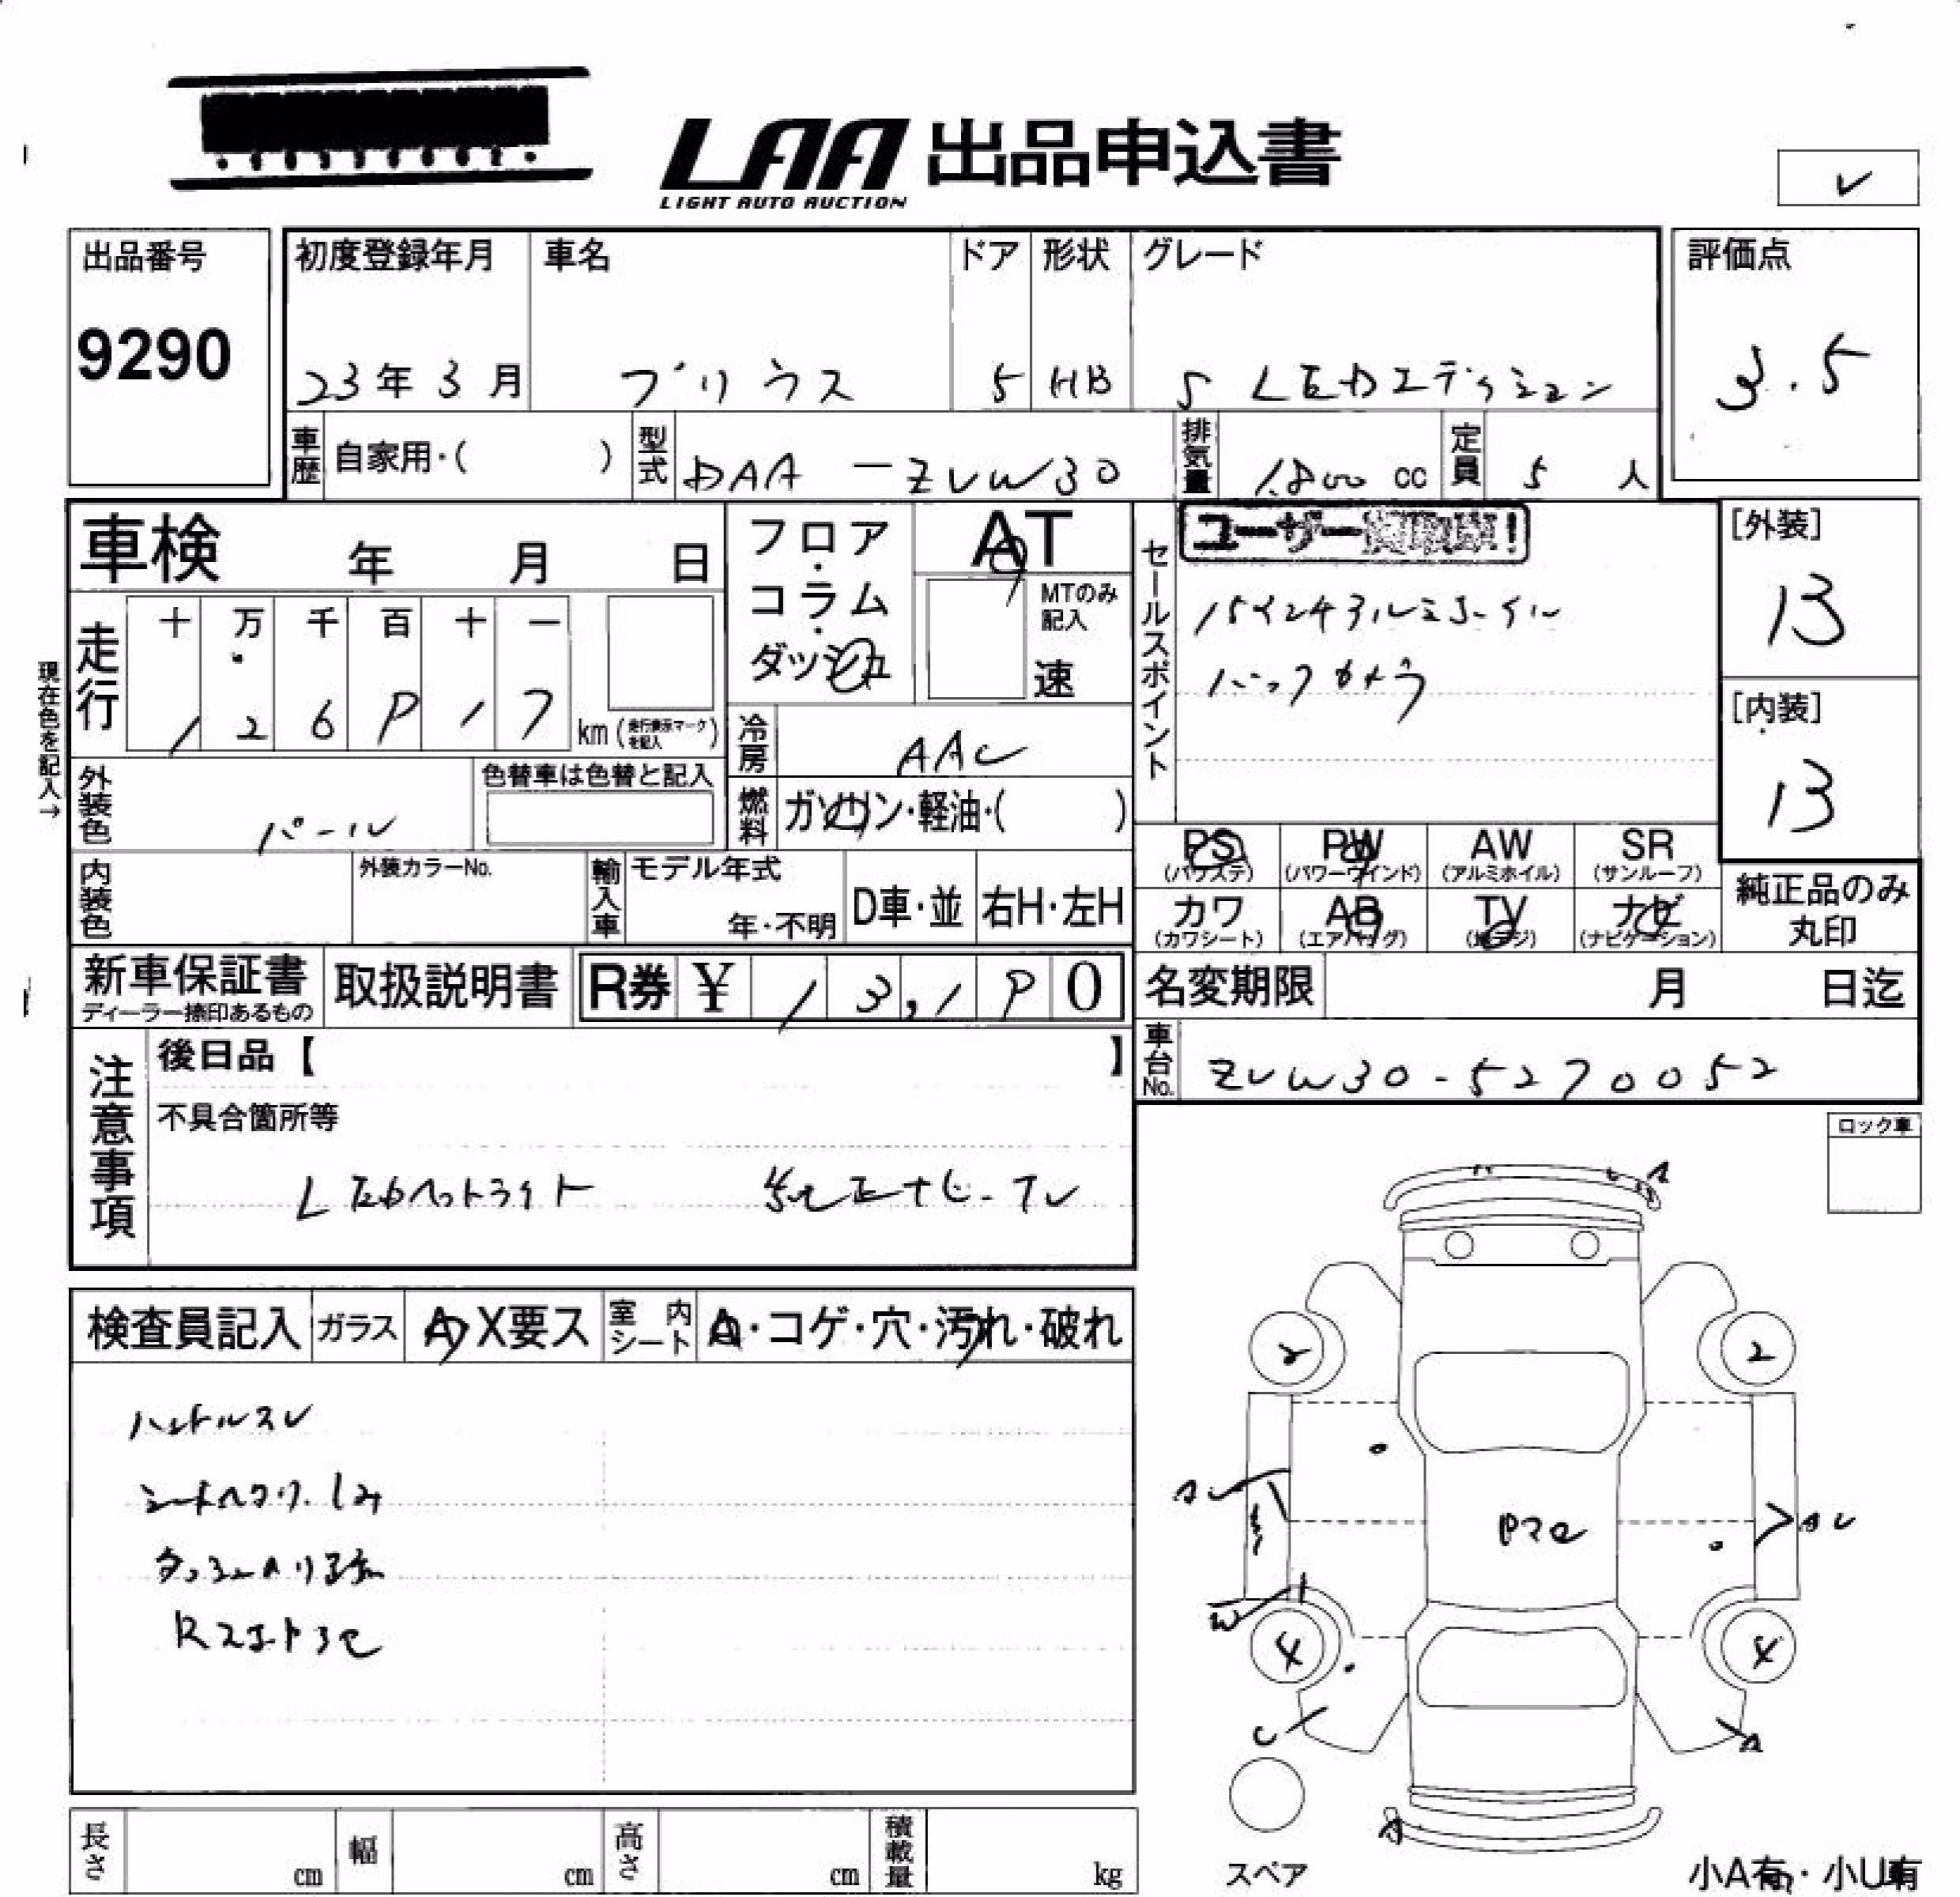 LAA 出品申込書
LIGHT AUTO AUCTION
出品番号
9290
初度登録年月
23年 3月
車名
プリウス
ドア
5
形状
HB
グレード
S LEDエディション
評価点
3.5
車歴
自家用・( )
型式
DAA-ZVW30
排気量
1800 cc
定員
5 人
車検 年 月 日
フロア・コラム・ダッシュ
AT
MTのみ記入
速
セールスポイント
ユーザー
15インチアルミホイル
バックカメラ
[外装]
13
[内装]
13
現在色を記入→
走行
十 万 千 百 十 一
1 2 6 9 1 7 km
冷房
AAC
燃料
ガソリン・軽油・( )
外装色
パール
色替車は色替と記入
内装色
外装カラーNo.
輸入車
モデル年式
年・不明
D車・並
右H・左H
PS (パワステ)
PW (パワーウインド)
AW (アルミホイル)
SR (サンルーフ)
カワ (カワシート)
AB (エアバッグ)
TV (地デジ)
ナビ (ナビゲーション)
純正品のみ丸印
新車保証書
ディーラー捺印あるもの
取扱説明書
R券 ¥ 13,190
名変期限 月 日迄
車台No.
ZVW30-5270052
注意事項
後日品【 】
不具合箇所等
LEDヘットライト 純正ナビ-TV
ロック車
検査員記入
ガラス
A X要ス
室内シート
・コゲ・穴・汚れ・破れ
ハンドルスレ
シートヘタリ.しみ
2
2
AU
AU
W
4
4
C
A
A
A
長さ cm
幅 cm
高さ cm
積載量 kg
スペア
小A有・小U有